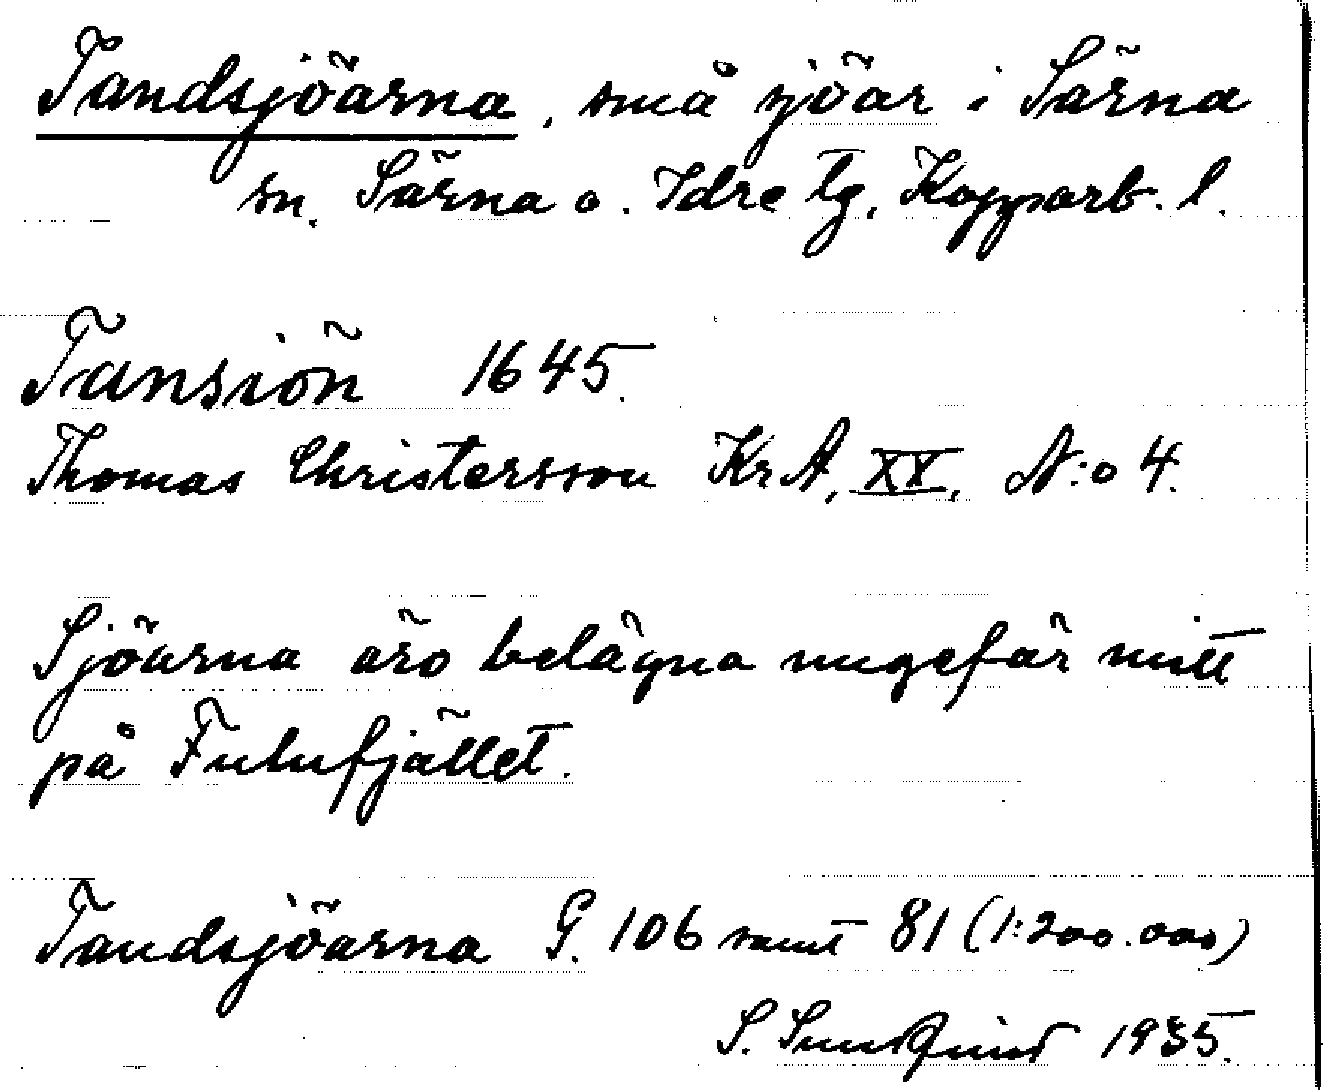 Tandsjöarna, små sjöar i Särna
sn. Särna o. Idre tg. Kopparb. l.
Tansiön 1645.
Thomas Christersson KrA, XX, N:o 4.
Sjöarna äro belägna ungefär mitt
på Fulufjället.
Tandsjöarna G. 106 samt 81 (1:200.000)
S. Sundquist 1935.